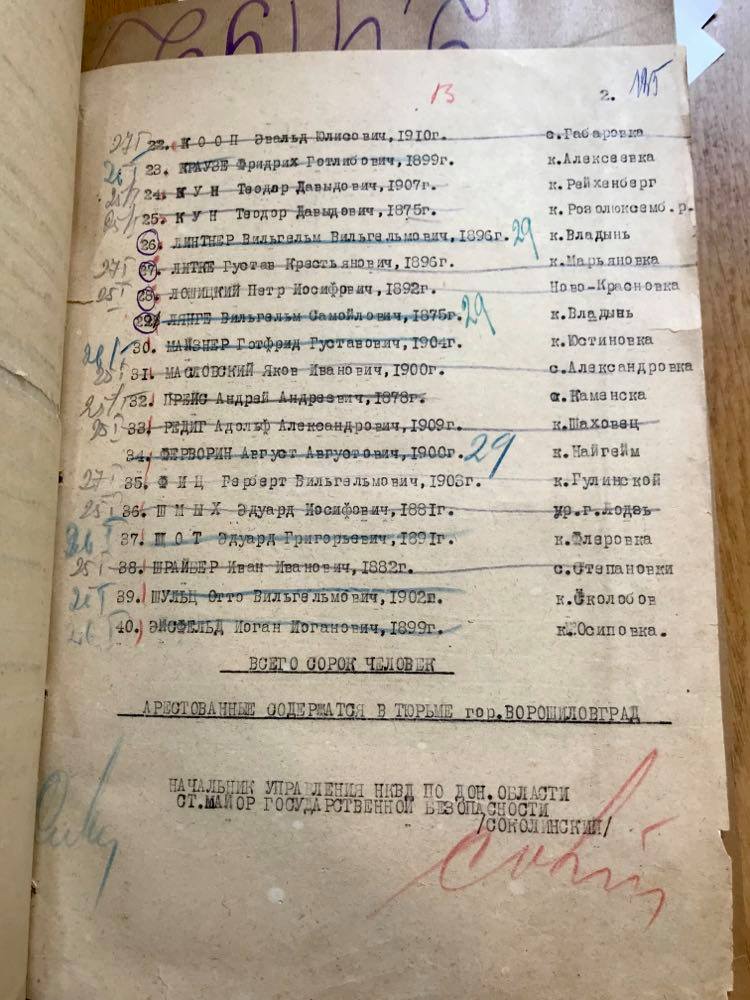 13
2. 115
27 I 22. К О О П Эвальд Юлисович,1910г. с.Габаровка
26 I 23. КРАУЗЕ Фридрих Готлибович,1899г. к.Алексеевка
25/I 24. К У Н Теодор Давыдович,1907г. к.Рейхенберг
25/I 25. К У Н Теодор Давыдович,1875г. к.Розолюксемб.р.
26. ЛИНТНЕР Вильгельм Вильгельмович,1896г. 29 к.Владынь
27 I 27. ЛИТКЕ Густав Крестьянович,1896г. к.Марьяновка
25 I 28. ЛОШИЦКИЙ Петр Иосифович,1892г. Ново-Красновка
29. ЛЯНГЕ Вильгельм Самойлович,1875г. 29 к.Владынь
26/I 30. МАЙЗНЕР Готфрид Густавович,1904г. к.Юстиновка
25 I 31. МАСЛОВСКИЙ Яков Иванович,1900г. с.Александровка
25/I 32. ПРЕЙС Андрей Андреевич,1878г. с.Каменска
25 I 33. РЕДИГ Адольф Александрович,1909г. к.Шаховец
34. ФЕРВОРИН Август Августович,1900г. 29 к.Найгейм
27 I 35. Ф И Ц Герберт Вильгельмович,1903г. к.Гулинской
25 I 36. Ш М Ы Х Эдуард Иосифович,1881г. ур.г.Лодзь
26 I 37. Ш О Т Эдуард Григорьевич,1891г. к.Флеровка
25 I 38. ШРАЙБЕР Иван Иванович,1882г. с.Степановки
26 I 39. ШУЛЬЦ Отто Вильгельмович,1902г. к.Сколобов
26 I 40. ЭЙСФЕЛЬД Иоган Иоганович,1899г. к.Осиповка.
ВСЕГО СОРОК ЧЕЛОВЕК
АРЕСТОВАННЫЕ СОДЕРЖАТСЯ В ТЮРЬМЕ гор.ВОРОШИЛОВГРАД
НАЧАЛЬНИК УПРАВЛЕНИЯ НКВД ПО ДОН.ОБЛАСТИ
СТ.МАЙОР ГОСУДАРСТВЕННОЙ БЕЗОПАСНОСТИ
/СОКОЛИНСКИЙ/